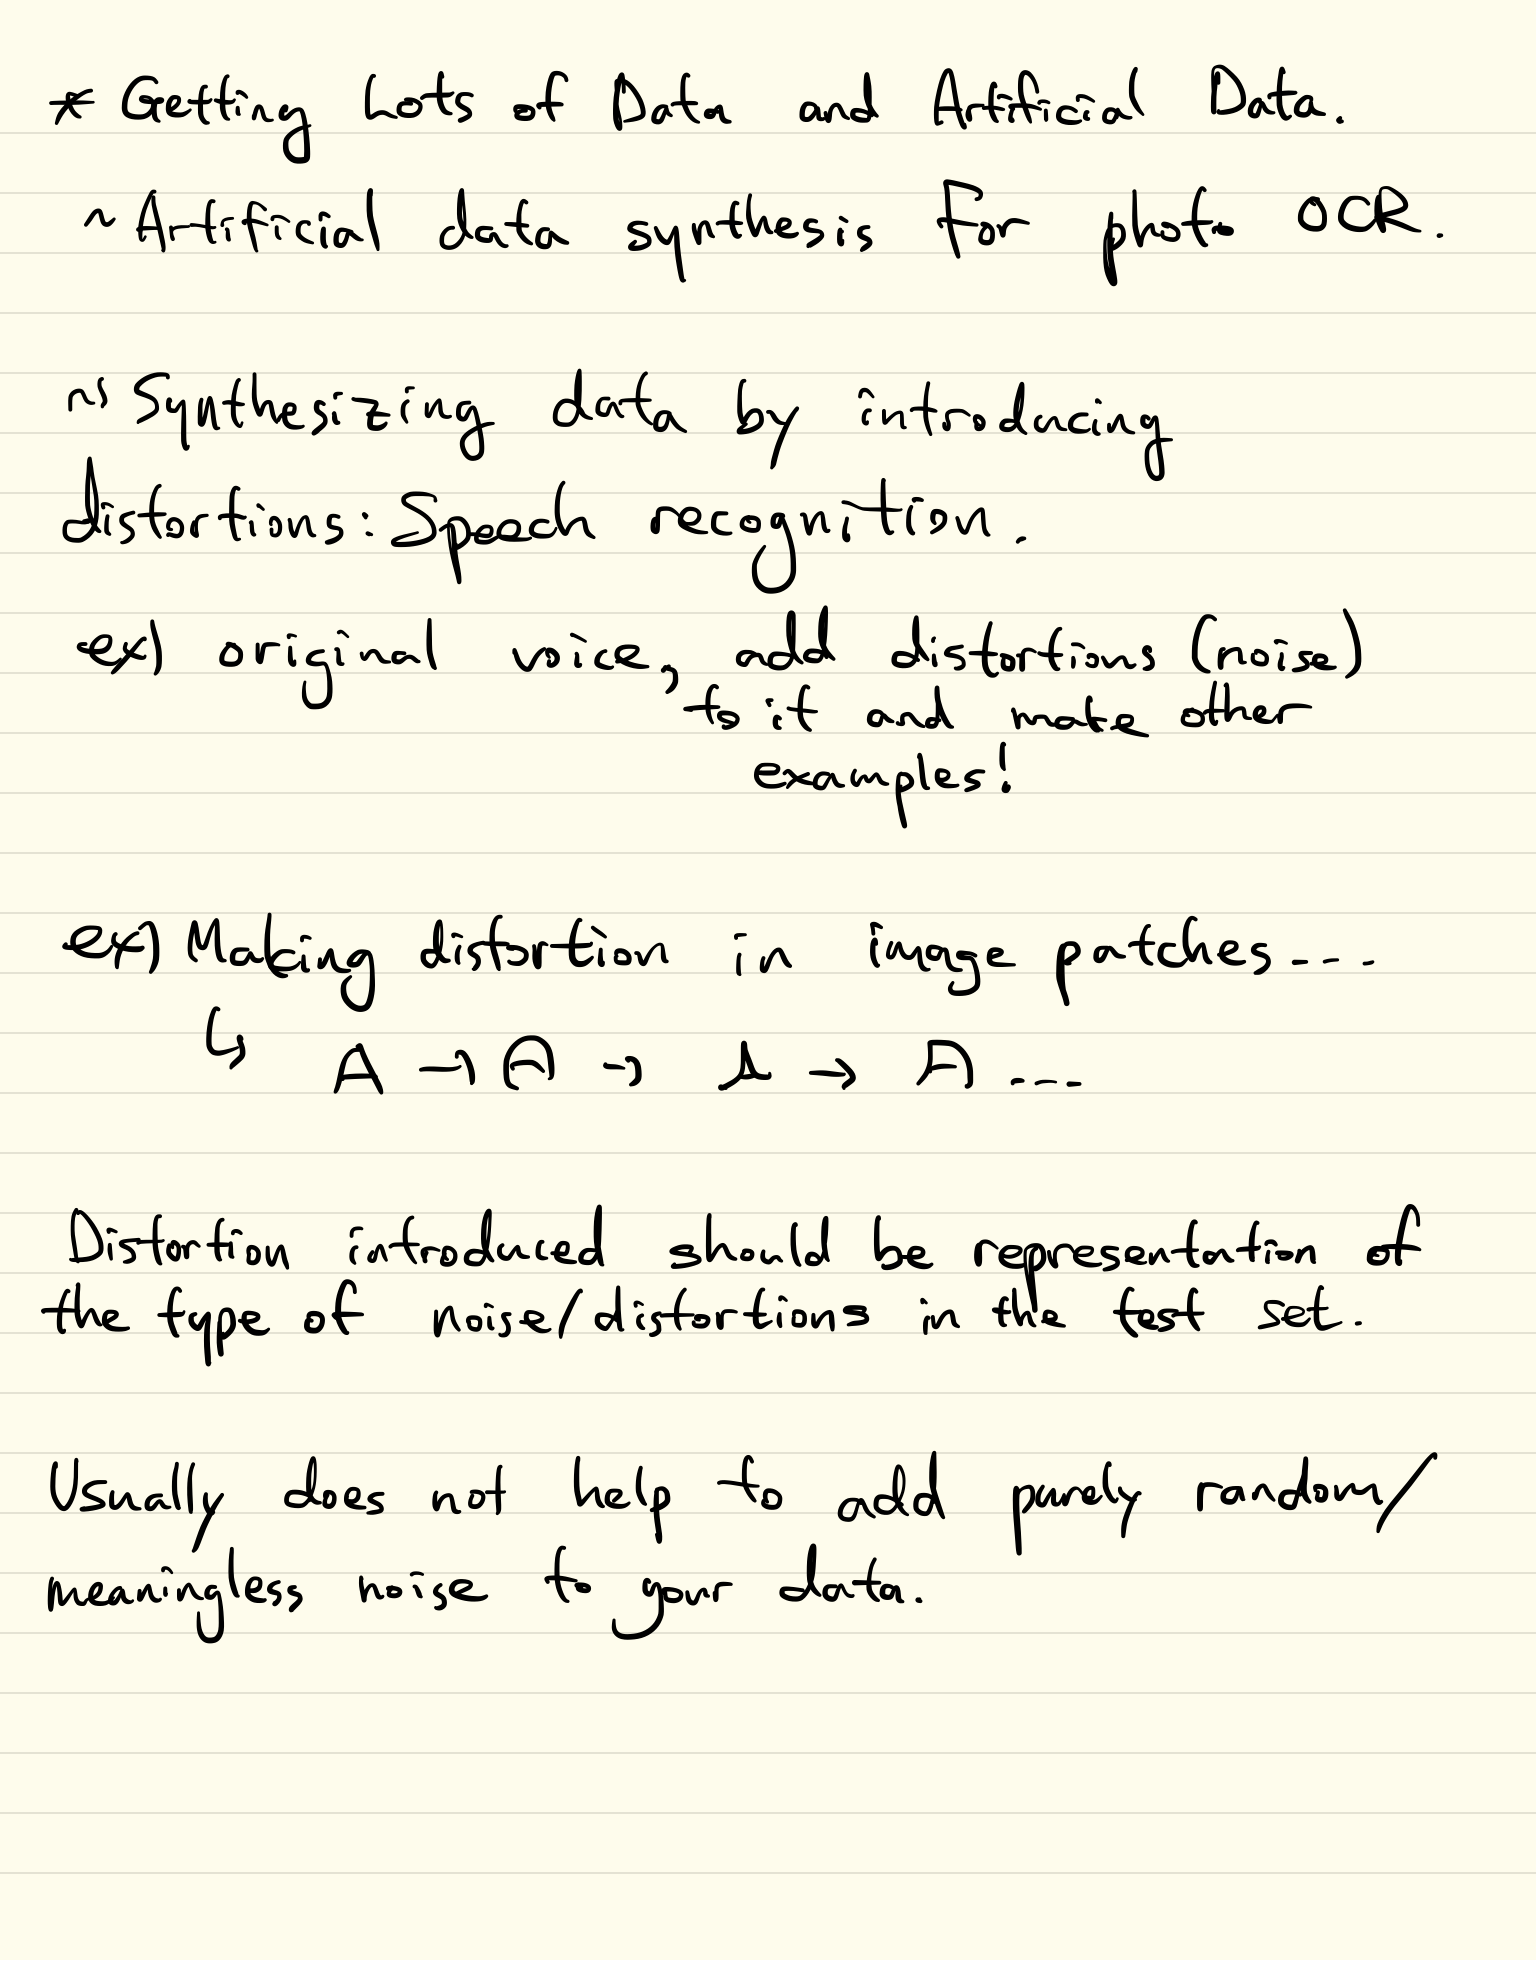 * Getting Lots of Data and Artificial Data.
~ Artificial data synthesis for photo OCR.
~ Synthesizing data by introducing
distortions: Speech recognition.
ex) original voice, add distortions (noise)
to it and make other
examples!
ex) Making distortion in image patches....
↳ A → A → A → A ....
Distortion introduced should be representation of
the type of noise/distortions in the test set.
Usually does not help to add purely random/
meaningless noise to your data.